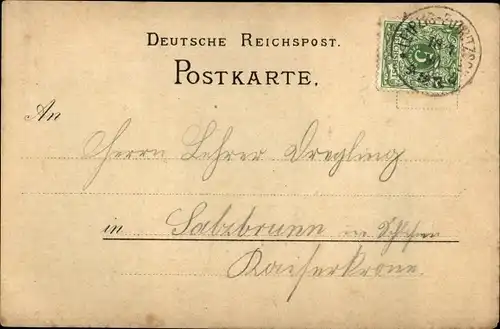 DEUTSCHE REICHSPOST.
POSTKARTE.
An
Herrn Lehrer Dregling
in Salzbrunn in Schlesien
Kaiserkrone
5